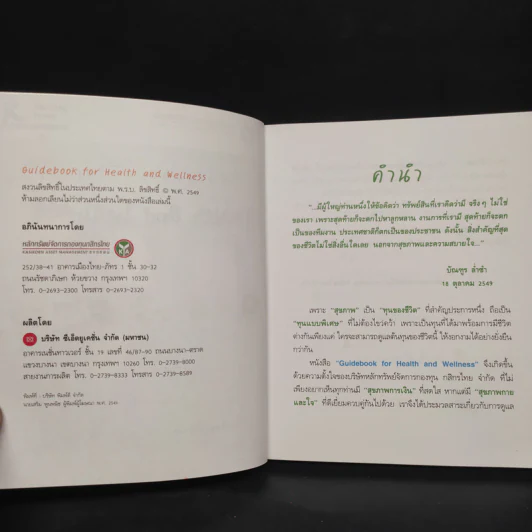 Guidebook for Health and Wellness
สงวนลิขสิทธิ์ในประเทศไทยตาม พ.ร.บ. ลิขสิทธิ์ © พ.ศ. 2549
ห้ามลอกเลียนไม่ว่าส่วนหนึ่งส่วนใดของหนังสือเล่มนี้
อภินันทนาการโดย
หลักทรัพย์จัดการกองทุนกสิกรไทย
KASIKORN ASSET MANAGEMENT
252/38-41 อาคารเมืองไทย-ภัทร 1 ชั้น 30-32
ถนนรัชดาภิเษก ห้วยขวาง กรุงเทพฯ 10320
โทร. 0-2693-2300 โทรสาร 0-2693-2320
ผลิตโดย
บริษัท ซีเอ็ดยูเคชั่น จำกัด (มหาชน)
อาคารเนชั่นทาวเวอร์ ชั้น 19 เลขที่ 46/87-90 ถนนบางนา-ตราด
แขวงบางนา เขตบางนา กรุงเทพฯ 10260 โทร. 0-2739-8000
สายงานการผลิต โทร. 0-2739-8333 โทรสาร 0-2739-8589
พิมพ์ที่ : บริษัท พิมพ์ดี จำกัด
คำนำ
"...มีผู้ใหญ่ท่านหนึ่งให้ข้อคิดว่า ทรัพย์สินที่เราคิดว่ามี จริงๆ ไม่ใช่
ของเรา เพราะสุดท้ายก็จะตกไปหาลูกหลาน งานการที่เรามี สุดท้ายก็จะตก
เป็นของทีมงาน ประเทศชาติก็ตกเป็นของประชาชน ดังนั้น สิ่งสำคัญที่สุด
ของชีวิตไม่ใช่สิ่งอื่นใดเลย นอกจากสุขภาพและความสบายใจ..."
บัณฑูร ล่ำซำ
16 ตุลาคม 2549
เพราะ "สุขภาพ" เป็น "ทุนของชีวิต" ที่สำคัญประการหนึ่ง ถือเป็น
"ทุนแบบพิเศษ" ที่ไม่ต้องไขว่คว้า เพราะเป็นทุนที่ได้มาพร้อมการมีชีวิต
ต่างกันเพียงแค่ ใครจะสามารถดูแลต้นทุนของชีวิตนี้ ให้งอกงามได้อย่างยั่งยืน
กว่ากัน
หนังสือ "Guidebook for Health and Wellness" จึงเกิดขึ้น
ด้วยความตั้งใจของบริษัทหลักทรัพย์จัดการกองทุน กสิกรไทย จำกัด ที่ไม่
เพียงอยากเห็นทุกท่านมี "สุขภาพการเงิน" ที่สดใส หากแต่มี "สุขภาพกาย
และใจ" ที่ดีเยี่ยมควบคู่กันไปด้วย เราจึงได้ประมวลสาระเกี่ยวกับการดูแล